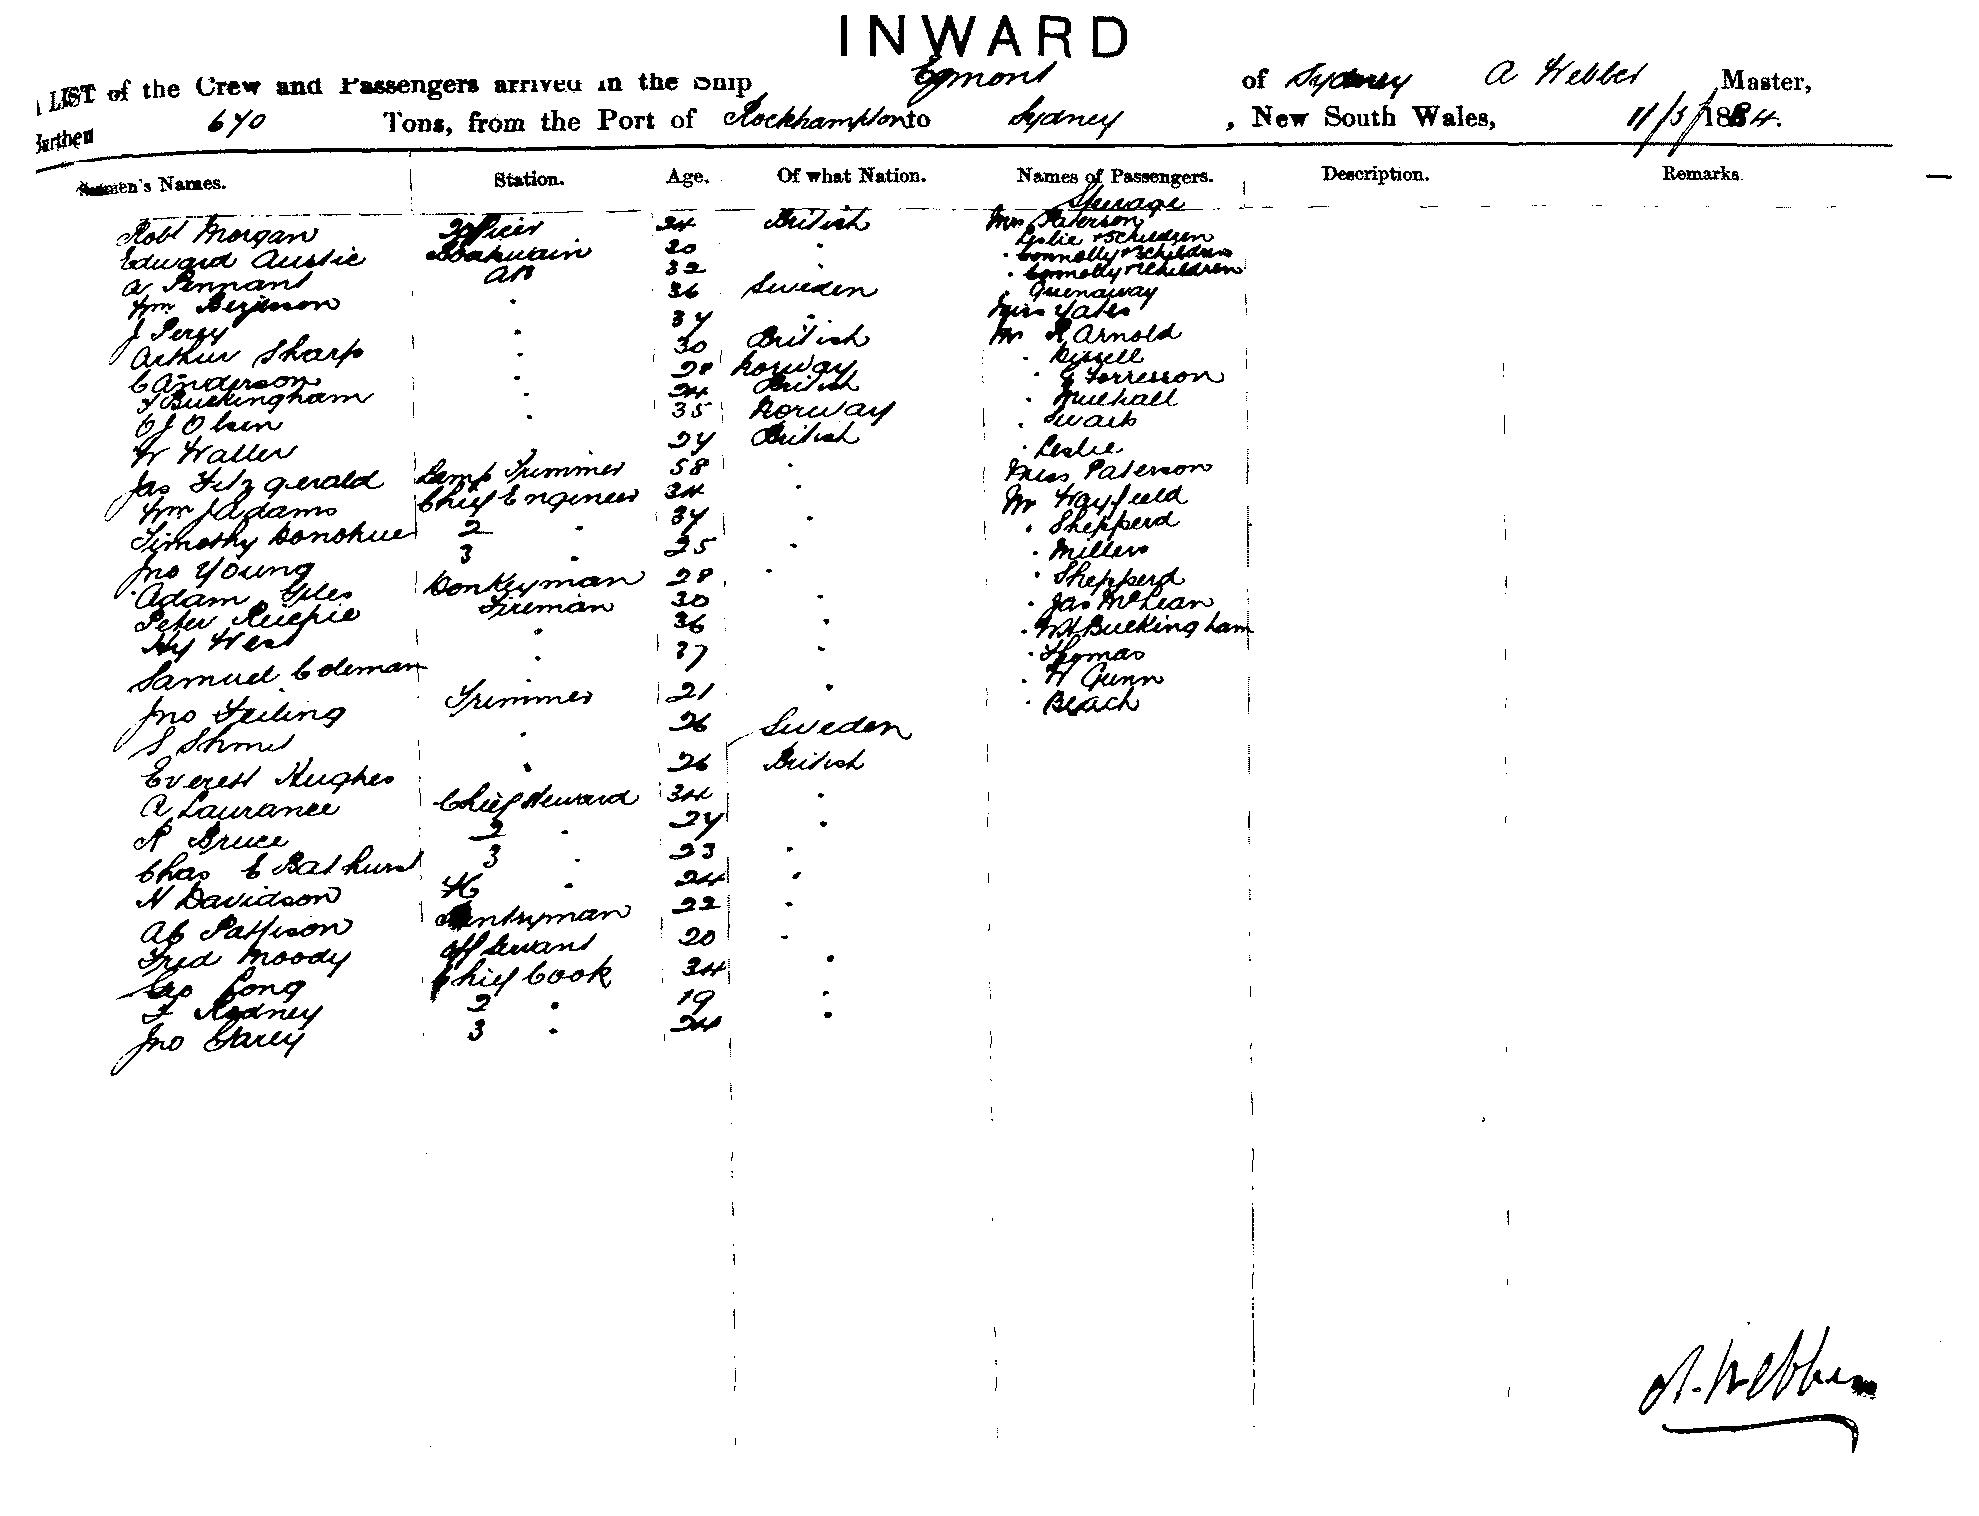 INWARD
A LIST of the Crew and Passengers arrived in the Ship Egmont of Sydney A Webber Master,
Burthen 670 Tons, from the Port of Rockhampton to Sydney, New South Wales, 11/3/1884.
Seamen's Names. Station. Age. Of what Nation. Names of Passengers. Description. Remarks
Steerage
Robt Morgan 2 Officer 24 British Mrs Paterson
Edward Austic 20 " " Leslie + 5 children
" Connolly + 3 children
A Pennant AB 32 " Connolly + 2 children
Wm 36 Sweden " Greenaway
J Percy " 37 " Miss Yates
Arthur Sharp " 30 British Mr R Arnold
C Anderson " 28 Norway "
F Buckingham " 24 British " G Torresson
O J Olsen " 35 Norway " Mulhall
W Waller " 27 British " Swarb
Jas Fitzgerald Lamp Trimmer 58 " " Leslie
Wm J Adams Chief Engineer 34 " Miss Paterson
Timothy Donohue 2 " 37 " Mr Wayfield
Jno Young 3 " 25 " " Shepperd
Adam Giles Donkeyman 28 " " Millers
Peter Fireman 30 " " Shepperd
Hy West " 36 " " Jas McLean
Samuel Coleman " 37 " " Wm Buckingham
Jno Feiling Trimmer 21 " " Thomas
S " 26 Sweden " H Gunn
Everett Hughes " 26 British " Beach
A Laurance Chief Steward 34 "
R Bruce 2 " 27 "
Chas E Bathurst 3 " 23 "
N Davidson 4 " 24 "
Ab Pattison Pantryman 22 "
Fred Moody Off Servant 20 "
Geo Long Chief Cook 34 "
F Rodney 2 " 19 "
Jno Carey 3 " 24 "
A. Webber